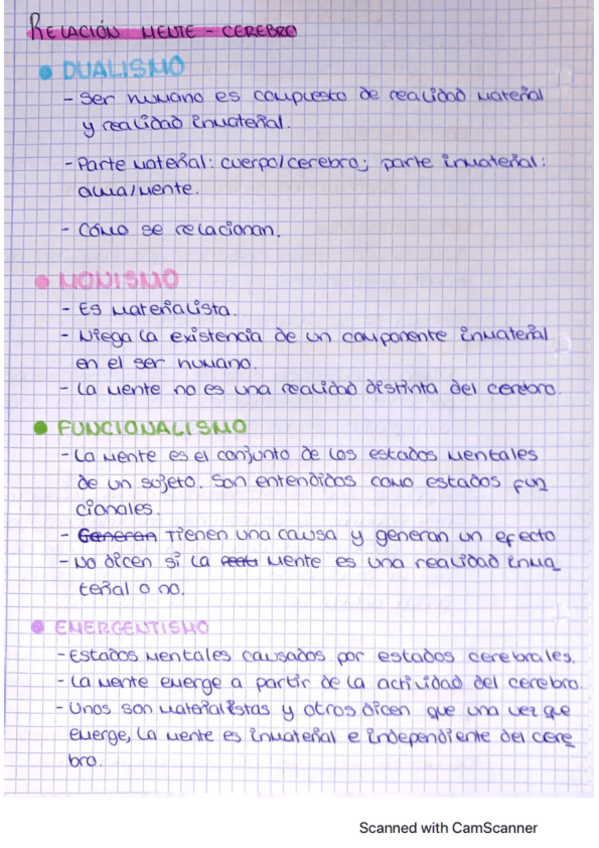 RELACIÓN MENTE - CEREBRO
DUALISMO
- Ser humano es compuesto de realidad material
y realidad inmaterial.
- Parte material: cuerpo/cerebro; parte inmaterial:
alma/mente.
- Cómo se relacionan.
MONISMO
- Es materialista.
- Niega la existencia de un componente inmaterial
en el ser humano.
- La mente no es una realidad distinta del cerebro.
FUNCIONALISMO
- La mente es el conjunto de los estados mentales
de un sujeto. Son entendidos como estados fun
cionales.
- Generan Tienen una causa y generan un efecto
- No dicen si la mente es una realidad inma
terial o no.
EMERGENTISMO
- Estados mentales causados por estados cerebrales.
- La mente emerge a partir de la actividad del cerebro.
- Unos son materialistas y otros dicen que una vez que
emerge, la mente es inmaterial e independiente del cere
bro.
Scanned with CamScanner